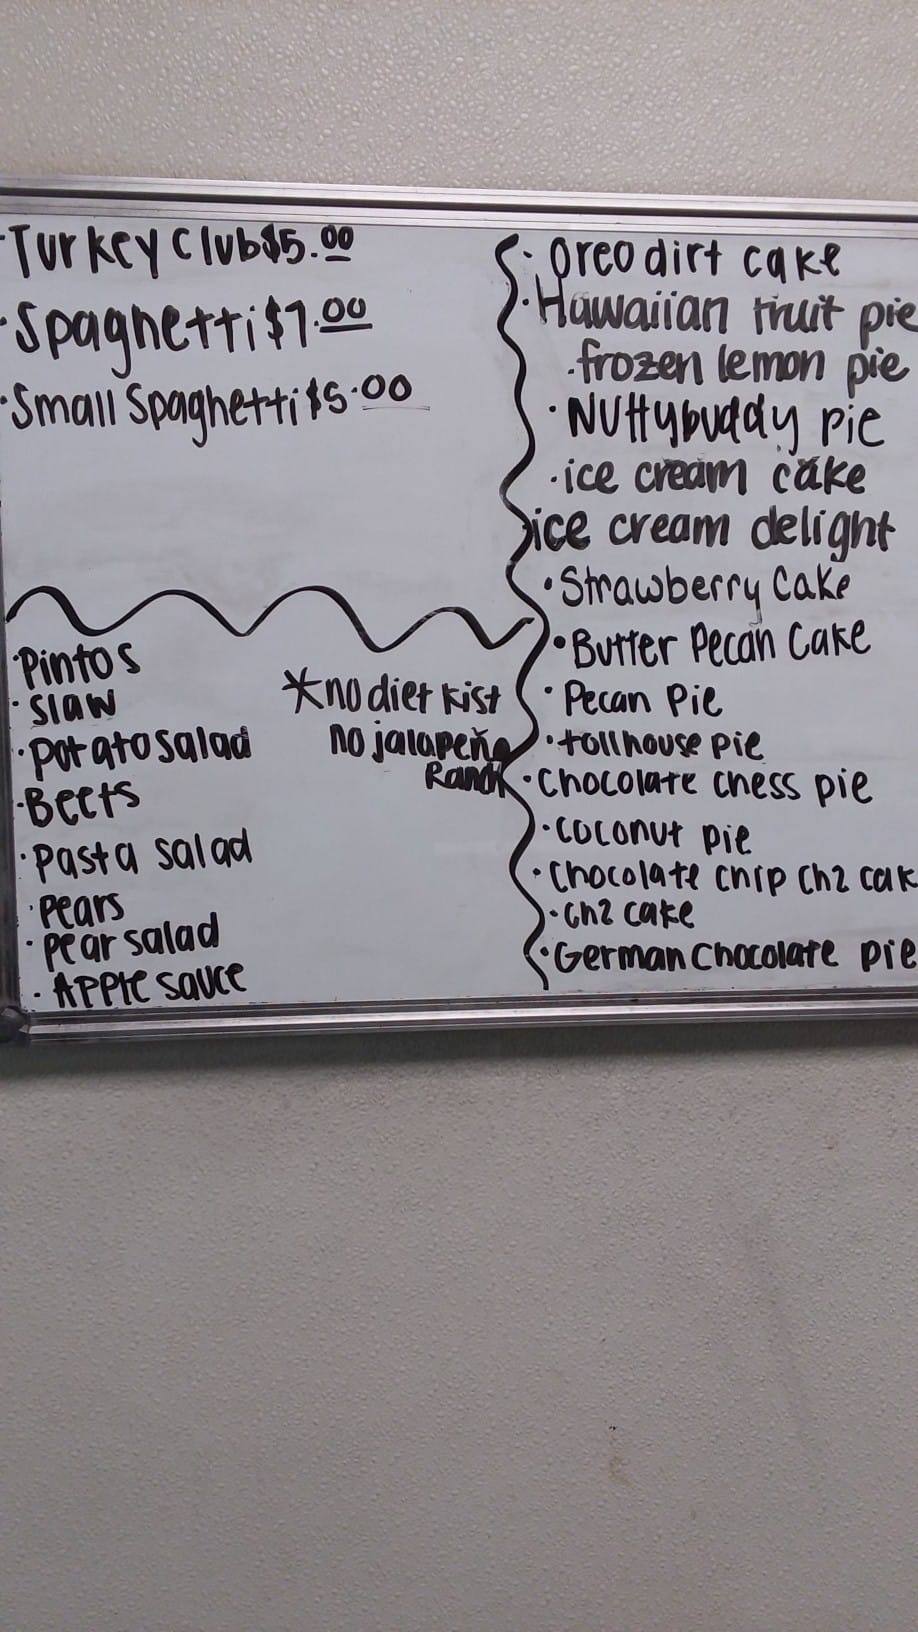 ·Turkey Club $5.00
·Spaghetti $7.00
·Small Spaghetti $5.00
·Pintos
·Slaw
·Potato salad
·Beets
·Pasta salad
·Pears
·Pear salad
·Apple sauce
*no diet kist
no jalapeño
Ranch
·Oreo dirt cake
·Hawaiian fruit pie
·frozen lemon pie
·Nuttybuddy pie
·ice cream cake
ice cream delight
·Strawberry Cake
·Butter Pecan Cake
·Pecan Pie
·tollhouse pie
·Chocolate chess pie
·coconut pie
·Chocolate chip chz cak
·chz cake
·German chocolate pie